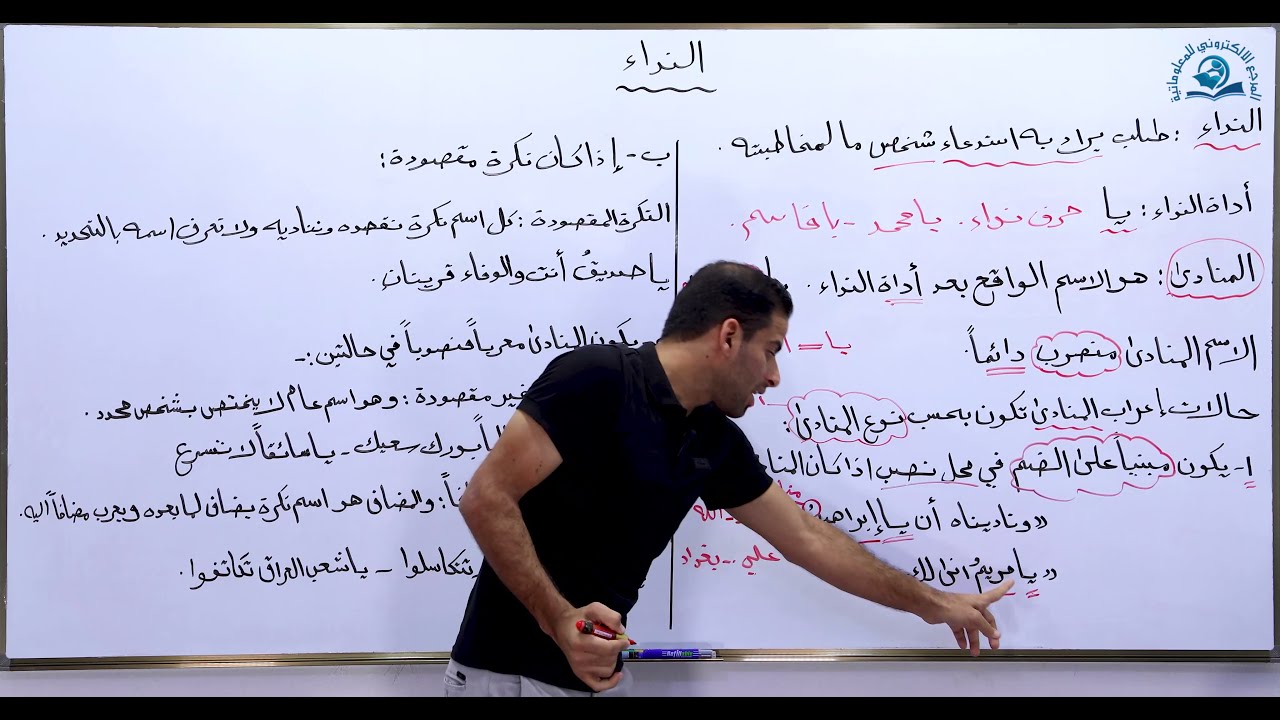 النداء
المرجع الالكتروني للمعلوماتية
النداء : طلب يراد به استدعاء شخص ما لمخاطبته .
أداة النداء : يا حرف نداء . يا محمد - يا قاسم .
المنادى : هو الاسم الواقع بعد أداة النداء .
الاسم المنادى منصوب دائماً . يا =
حالات إعراب المنادى تكون بحسب نوع المنادى :
١- يكون مبنياً على الضم في محل نصب اذا كان
« وناديناه أن يا إبراهيم
« يا مريمُ انى لك علي - بغداد
ب - إذا كان نكرة مقصودة :
النكرة المقصودة : كل اسم نكرة نقصده ونناديه ولا تعرف اسمه بالتحديد .
يا صديقُ أنت والوفاء قرينانِ .
يكون المنادى معرباً منصوباً في حالتين :-
غير مقصودة : وهو اسم عام لا يختص بشخص محدد .
بورك سعيك - يا سائقاً لا تسرع
: والمضاف هو اسم نكرة يضاف لما بعده ويعرب مضافاً اليه .
تتكاسلوا - يا شعب العراق تكاتفوا .